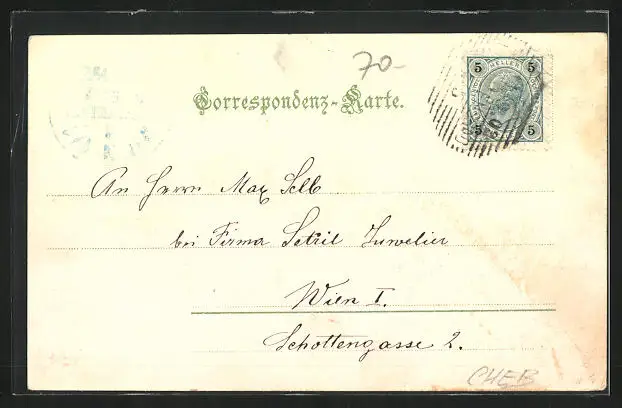 70-
Correspondenz-Karte.
5 HELLER 5
5 5
An Herrn Max Selb
bei Firma Juwelier
Wien I.
Schottengasse 2.
CHEB